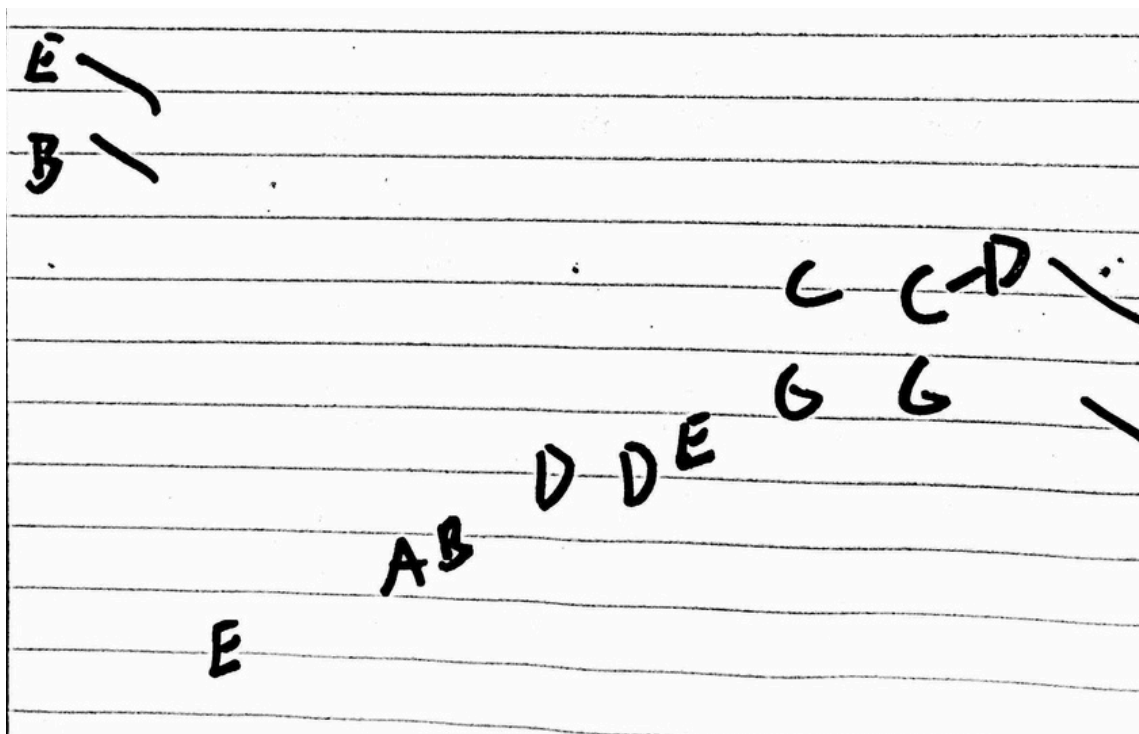 E
B
C C-D
G G
D D E
A B
E